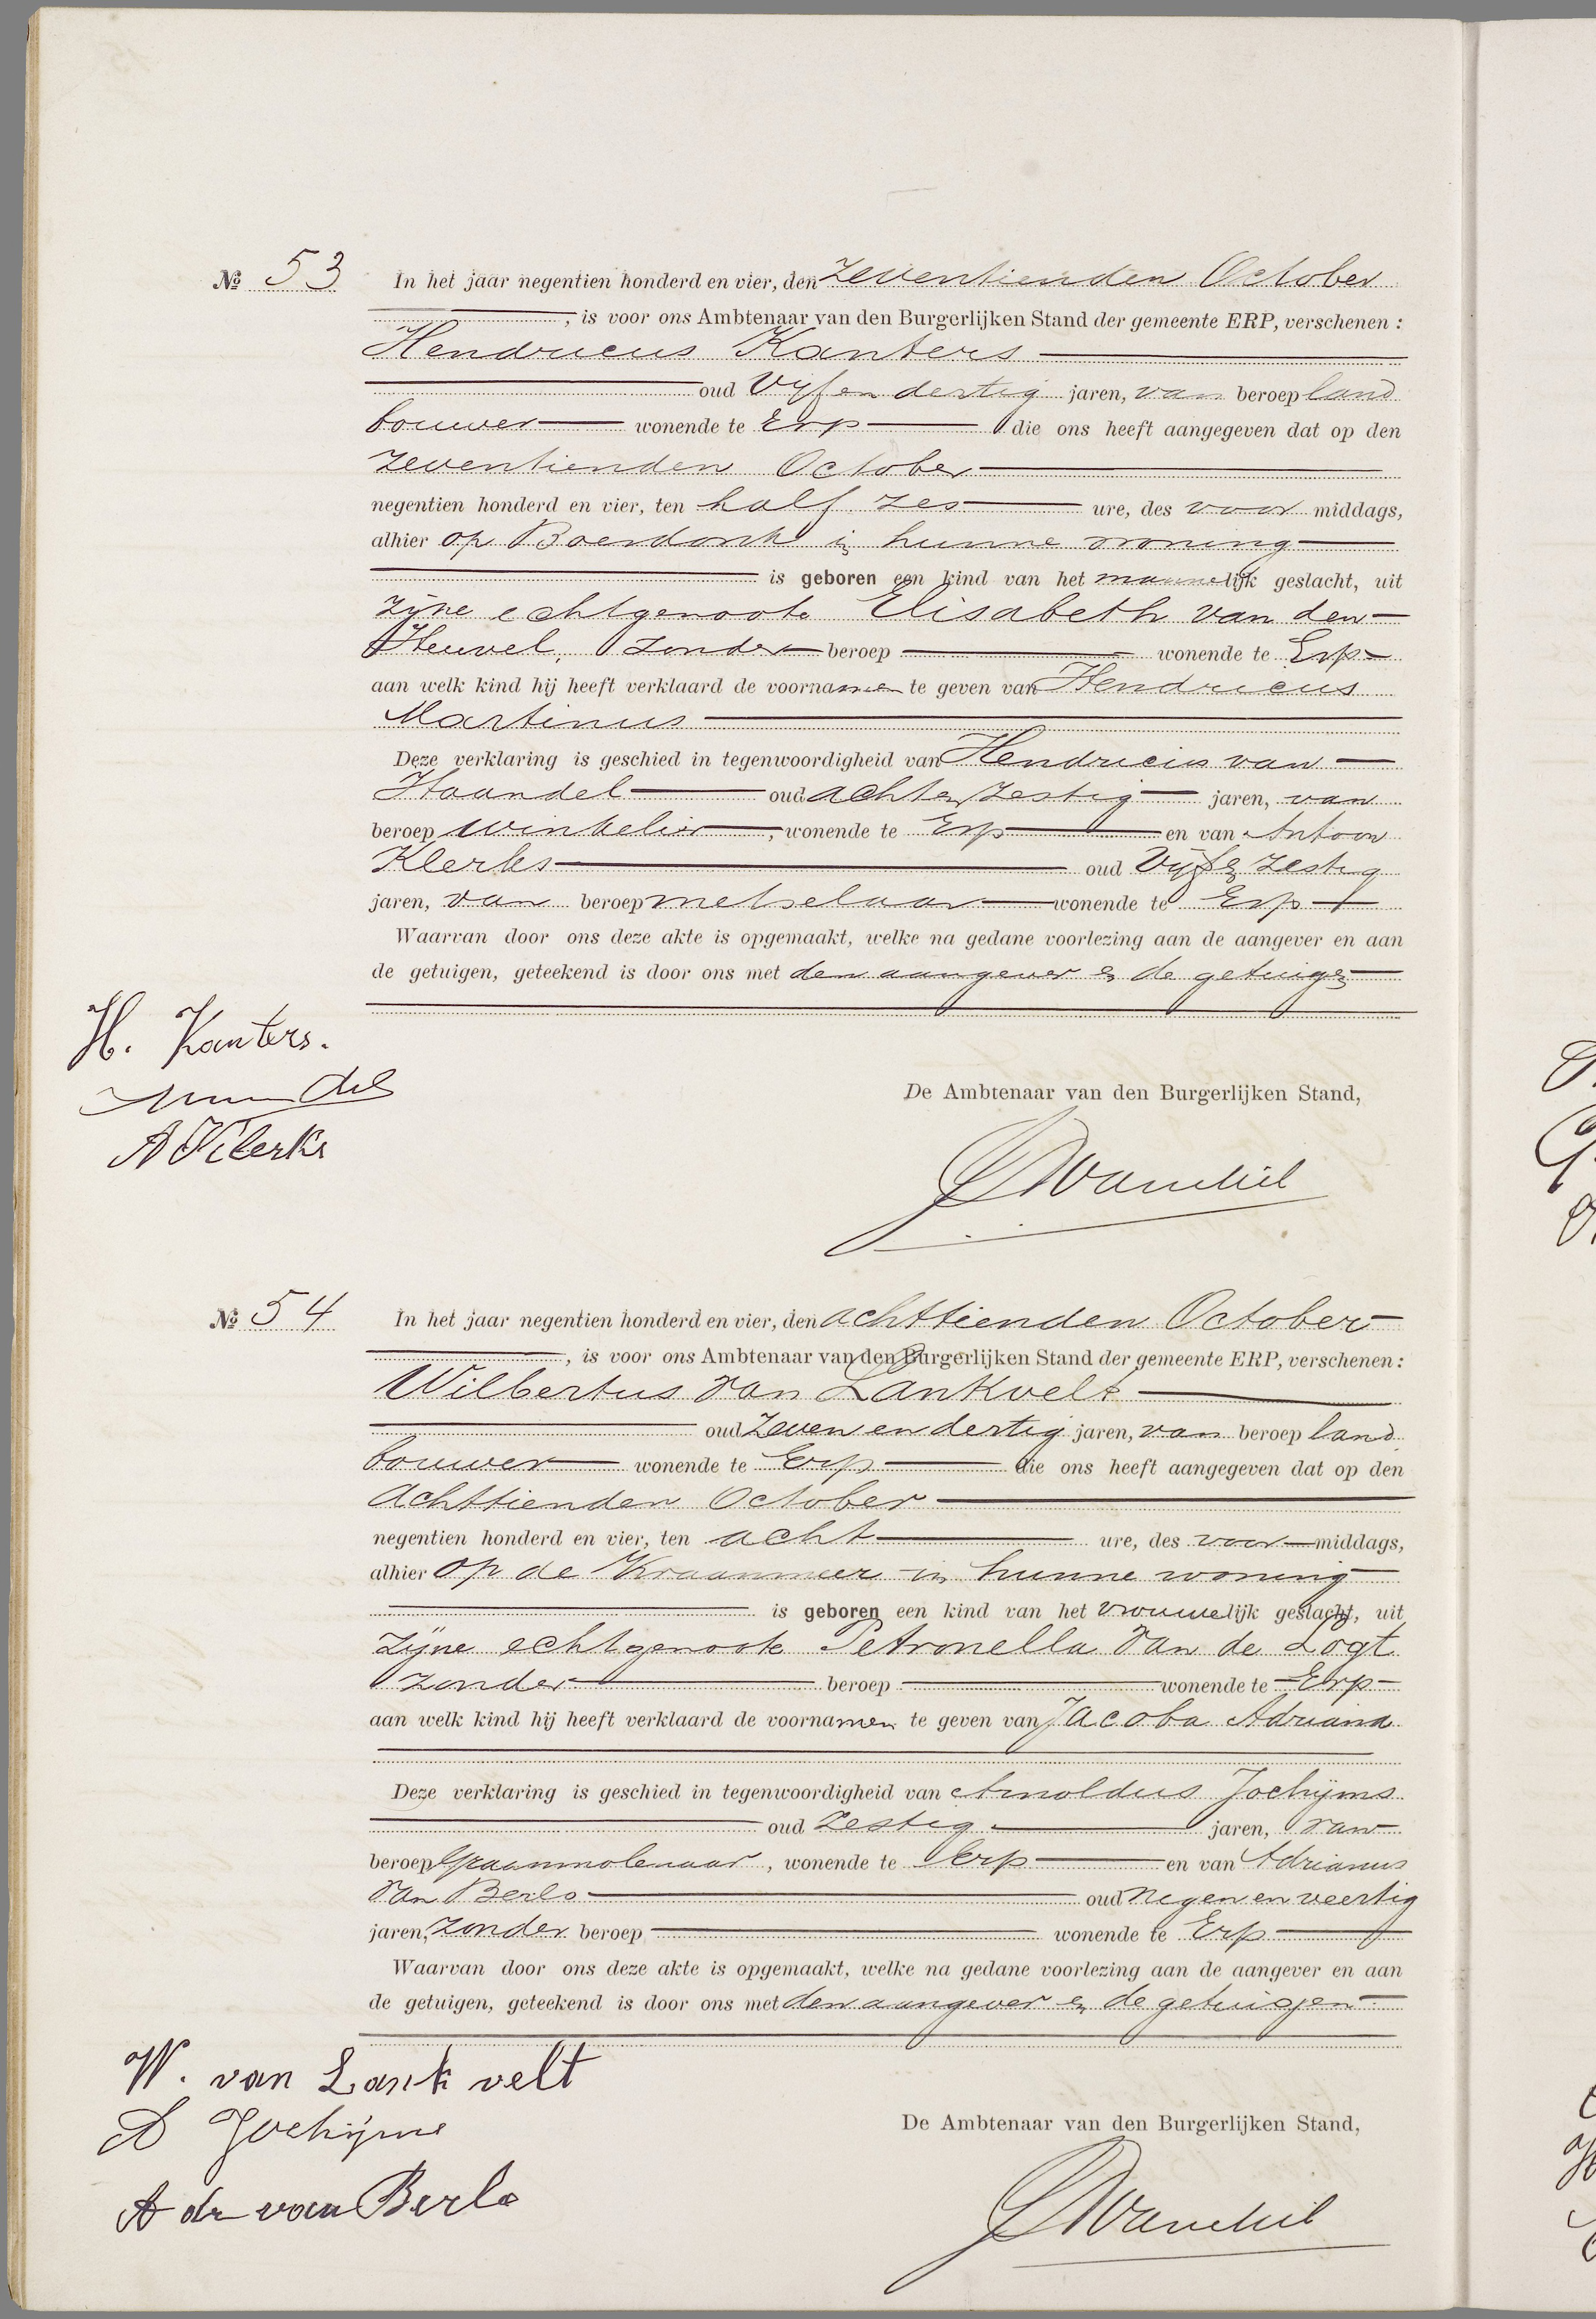 № 53 In het jaar negentien honderd en vier, den zeventienden October
, is voor ons Ambtenaar van den Burgerlijken Stand der gemeente ERP, verschenen:
Hendricus Kanters
oud Vijf en dertig jaren, van beroep land
bouwer wonende te Erp die ons heeft aangegeven dat op den
zeventienden October
negentien honderd en vier, ten half zes ure, des voor middags,
alhier op Boerdonk in hunne woning
is geboren een kind van het mannelijk geslacht, uit
zijne echtgenoote Elisabeth van den
Heuvel, zonder beroep wonende te Erp
aan welk kind hij heeft verklaard de voornamen te geven van Hendricus
Martinus
Deze verklaring is geschied in tegenwoordigheid van Hendricus van
Haandel oud achten zestig jaren, van
beroep winkelier, wonende te Erp en van Antoon
Klerks oud Vijf en zestig
jaren, van beroep metselaar wonende te Erp
Waarvan door ons deze akte is opgemaakt, welke na gedane voorlezing aan de aangever en aan
de getuigen, geteekend is door ons met den aangever en de getuigen
H. Kanters.
A Klerks
De Ambtenaar van den Burgerlijken Stand,
№ 54 In het jaar negentien honderd en vier, den achttienden October
, is voor ons Ambtenaar van den Burgerlijken Stand der gemeente ERP, verschenen:
Wilbertus van Lankvelt
oud Zeven en dertig jaren, van beroep land
bouwer wonende te Erp die ons heeft aangegeven dat op den
achttienden October
negentien honderd en vier, ten acht ure, des voor middags,
alhier op de Kraanmeer in hunne woning
is geboren een kind van het vrouwelijk geslacht, uit
zijne echtgenoote Petronella van de Logt
zonder beroep wonende te Erp
aan welk kind hij heeft verklaard de voornamen te geven van Jacoba Adriana
Deze verklaring is geschied in tegenwoordigheid van Arnoldus Jochijms
oud zestig jaren, van
beroep Graanmolenaar, wonende te Erp en van Adrianus
van Berlo oud negen en veertig
jaren, zonder beroep wonende te Erp
Waarvan door ons deze akte is opgemaakt, welke na gedane voorlezing aan de aangever en aan
de getuigen, geteekend is door ons met den aangever en de getuigen
W. van Lankvelt
A Jochijms
Adr van Berlo
De Ambtenaar van den Burgerlijken Stand,